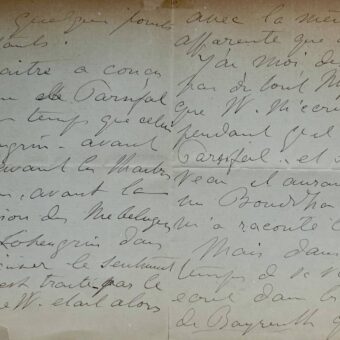 quelques points
aître a conçu
Parsifal
temps que celui
engrin - avant
avant les Maîtres
, avant la
des Niebelungen
Lohengrin dans
le sentiment
est traité par le
W. était alors
avec la mê
apparente que
J'ai moi de
pas du tout
que W. m'écri
pendant qu'il
Parsifal.. et
veau il aurait
un Bouddha
m'a raconté
Mais dans
temps de
écrit dans les
de Bayreuth